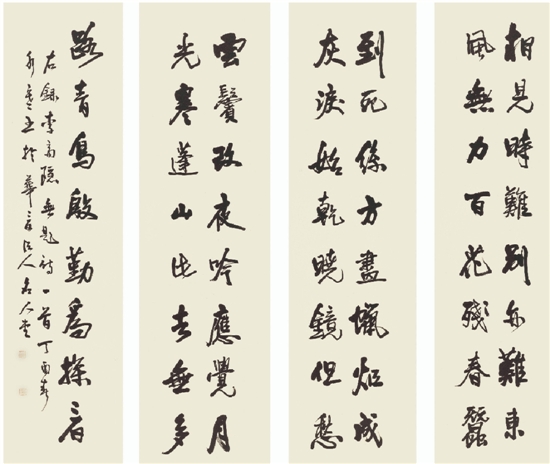 相見時難別亦難東
風無力百花殘春蠶
到死絲方盡蠟炬成
灰淚始乾曉鏡但愁
雲鬢改夜吟應覺月
光寒蓬山此去無多
路青鳥殷勤爲探看
右錄李商隱無題詩一首丁酉春
於華人名人堂